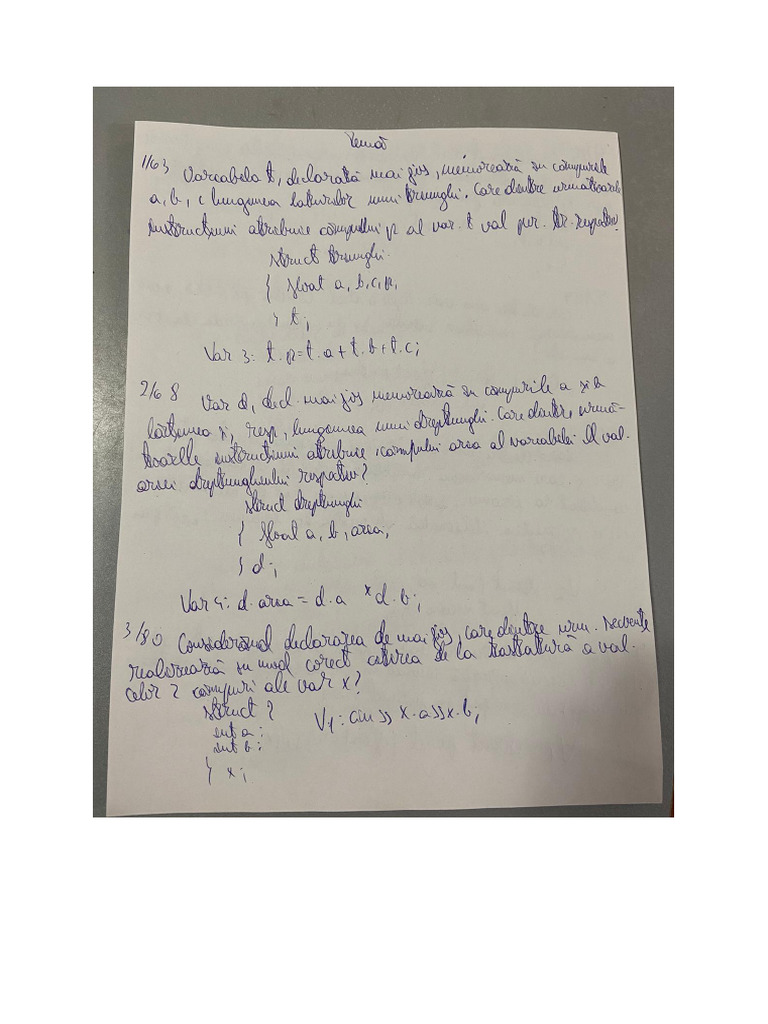 Temă
1/63 Variabila t, declarată mai jos, memorează în câmpurile
a, b, c lungimea laturilor unui triunghi. Care dintre următoarele
instrucțiuni atribuie câmpului p al var. t val per. tr. respectiv
struct triunghi
{ float a, b, c, p,
} t;
Var 3: t.p=t.a+t.b+t.c;
2/68 Var d, decl. mai jos memorează în câmpurile a și b
lățimea și, resp, lungimea unui dreptunghi. Care dintre urmă-
toarele instrucțiuni atribuie câmpului area al variabilei d val.
ariei dreptunghiului respectiv?
struct dreptunghi
{ float a, b, area,
} d;
Var 4: d.area = d.a *d.b;
3/80 Considerând declararea de mai jos, care dintre urm. secvențe
realizează în mod corect citirea de la tastatură a val.
celor 2 câmpuri ale var x?
struct {
int a;
int b;
} x;
V1: cin >> x.a>>x.b;